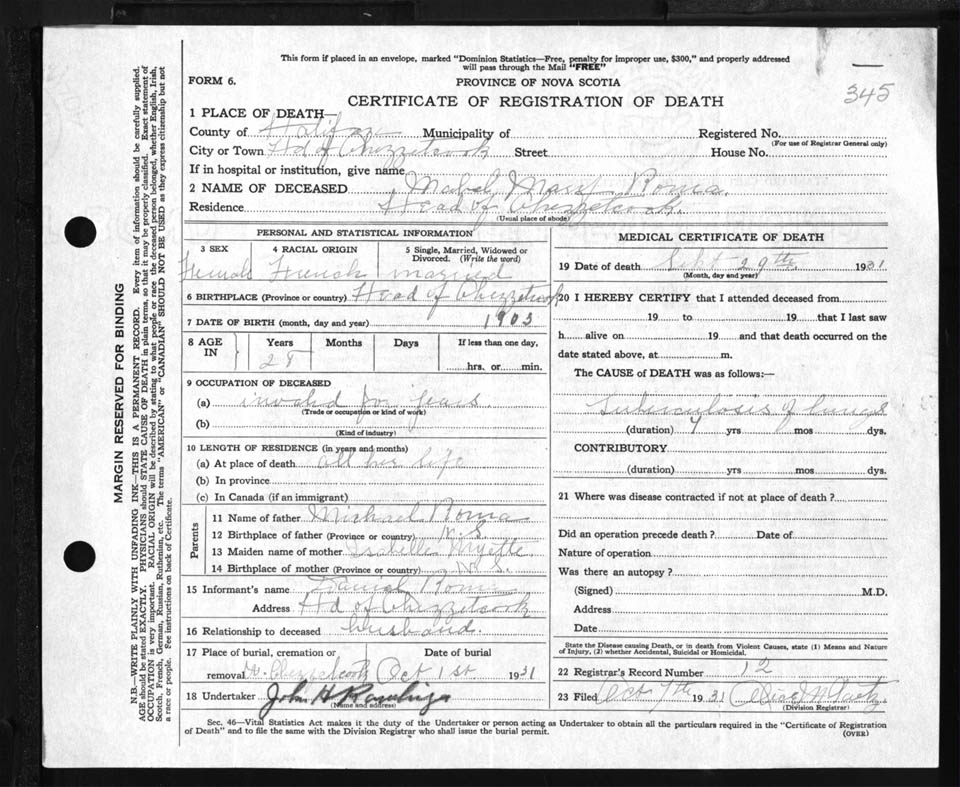 This form if placed in an envelope, marked "Dominion Statistics—Free, penalty for improper use, $300," and properly addressed
will pass through the Mail "FREE"
FORM 6.
PROVINCE OF NOVA SCOTIA
345
CERTIFICATE OF REGISTRATION OF DEATH
1 PLACE OF DEATH—
County of Halifax Municipality of Registered No.
(For use of Registrar General only)
City or Town Hd of Chezzetcook Street House No.
If in hospital or institution, give name
2 NAME OF DECEASED Mabel Mary Roma.
Residence Head of Chezzetcook.
(Usual place of abode)
PERSONAL AND STATISTICAL INFORMATION
3 SEX 4 RACIAL ORIGIN 5 Single, Married, Widowed or
Divorced. (Write the word)
Female French married
6 BIRTHPLACE (Province or country) Head of Chezzetcook
7 DATE OF BIRTH (month, day and year) 1903
8 AGE IN Years Months Days If less than one day,
28 hrs. or min.
9 OCCUPATION OF DECEASED
(a) invalid for years
(Trade or occupation or kind of work)
(b)
(Kind of industry)
10 LENGTH OF RESIDENCE (in years and months)
(a) At place of death all her life
(b) In province
(c) In Canada (if an immigrant)
Parents
11 Name of father Michael Roma
12 Birthplace of father (Province or country) N.S.
13 Maiden name of mother Isabelle Myette
14 Birthplace of mother (Province or country) N.S.
15 Informant's name Daniel Roma
Address Hd of Chezzetcook
16 Relationship to deceased Husband.
17 Place of burial, cremation or Date of burial
removal W. Chezzetcook Oct 1st 1931
18 Undertaker John H
(Name and address)
MEDICAL CERTIFICATE OF DEATH
19 Date of death Sept 29th 1931
(Month, day and year)
20 I HEREBY CERTIFY that I attended deceased from
19 to 19 that I last saw
h alive on 19 and that death occurred on the
date stated above, at m.
The CAUSE of DEATH was as follows:—
Tuberculosis of lungs
(duration) 4 yrs mos dys.
CONTRIBUTORY
(duration) yrs mos dys.
21 Where was disease contracted if not at place of death?
Did an operation precede death? Date of
Nature of operation
Was there an autopsy?
(Signed) M.D.
Address
Date
State the Disease causing Death, or in death from Violent Causes, state (1) Means and Nature
of Injury, (2) whether Accidental, Suicidal or Homicidal.
22 Registrar's Record Number 12
23 Filed Oct 7th 1931
(Division Registrar)
Sec. 46—Vital Statistics Act makes it the duty of the Undertaker or person acting as Undertaker to obtain all the particulars required in the "Certificate of Registration
of Death" and to file the same with the Division Registrar who shall issue the burial permit.
(OVER)
MARGIN RESERVED FOR BINDING
N.B.—WRITE PLAINLY WITH UNFADING INK—THIS IS A PERMANENT RECORD. Every item of information should be carefully supplied.
AGE should be stated EXACTLY. PHYSICIANS should STATE CAUSE OF DEATH in plain terms, so that it may be properly classified. Exact statement of
OCCUPATION is very important. RACIAL ORIGIN will be described by stating to what people or race the deceased person belonged, whether English, Irish,
Scotch, French, German, Russian, Ruthenian, etc. The terms "AMERICAN" or "CANADIAN" SHOULD NOT BE USED as they express citizenship but not
a race or people. See instructions on back of Certificate.